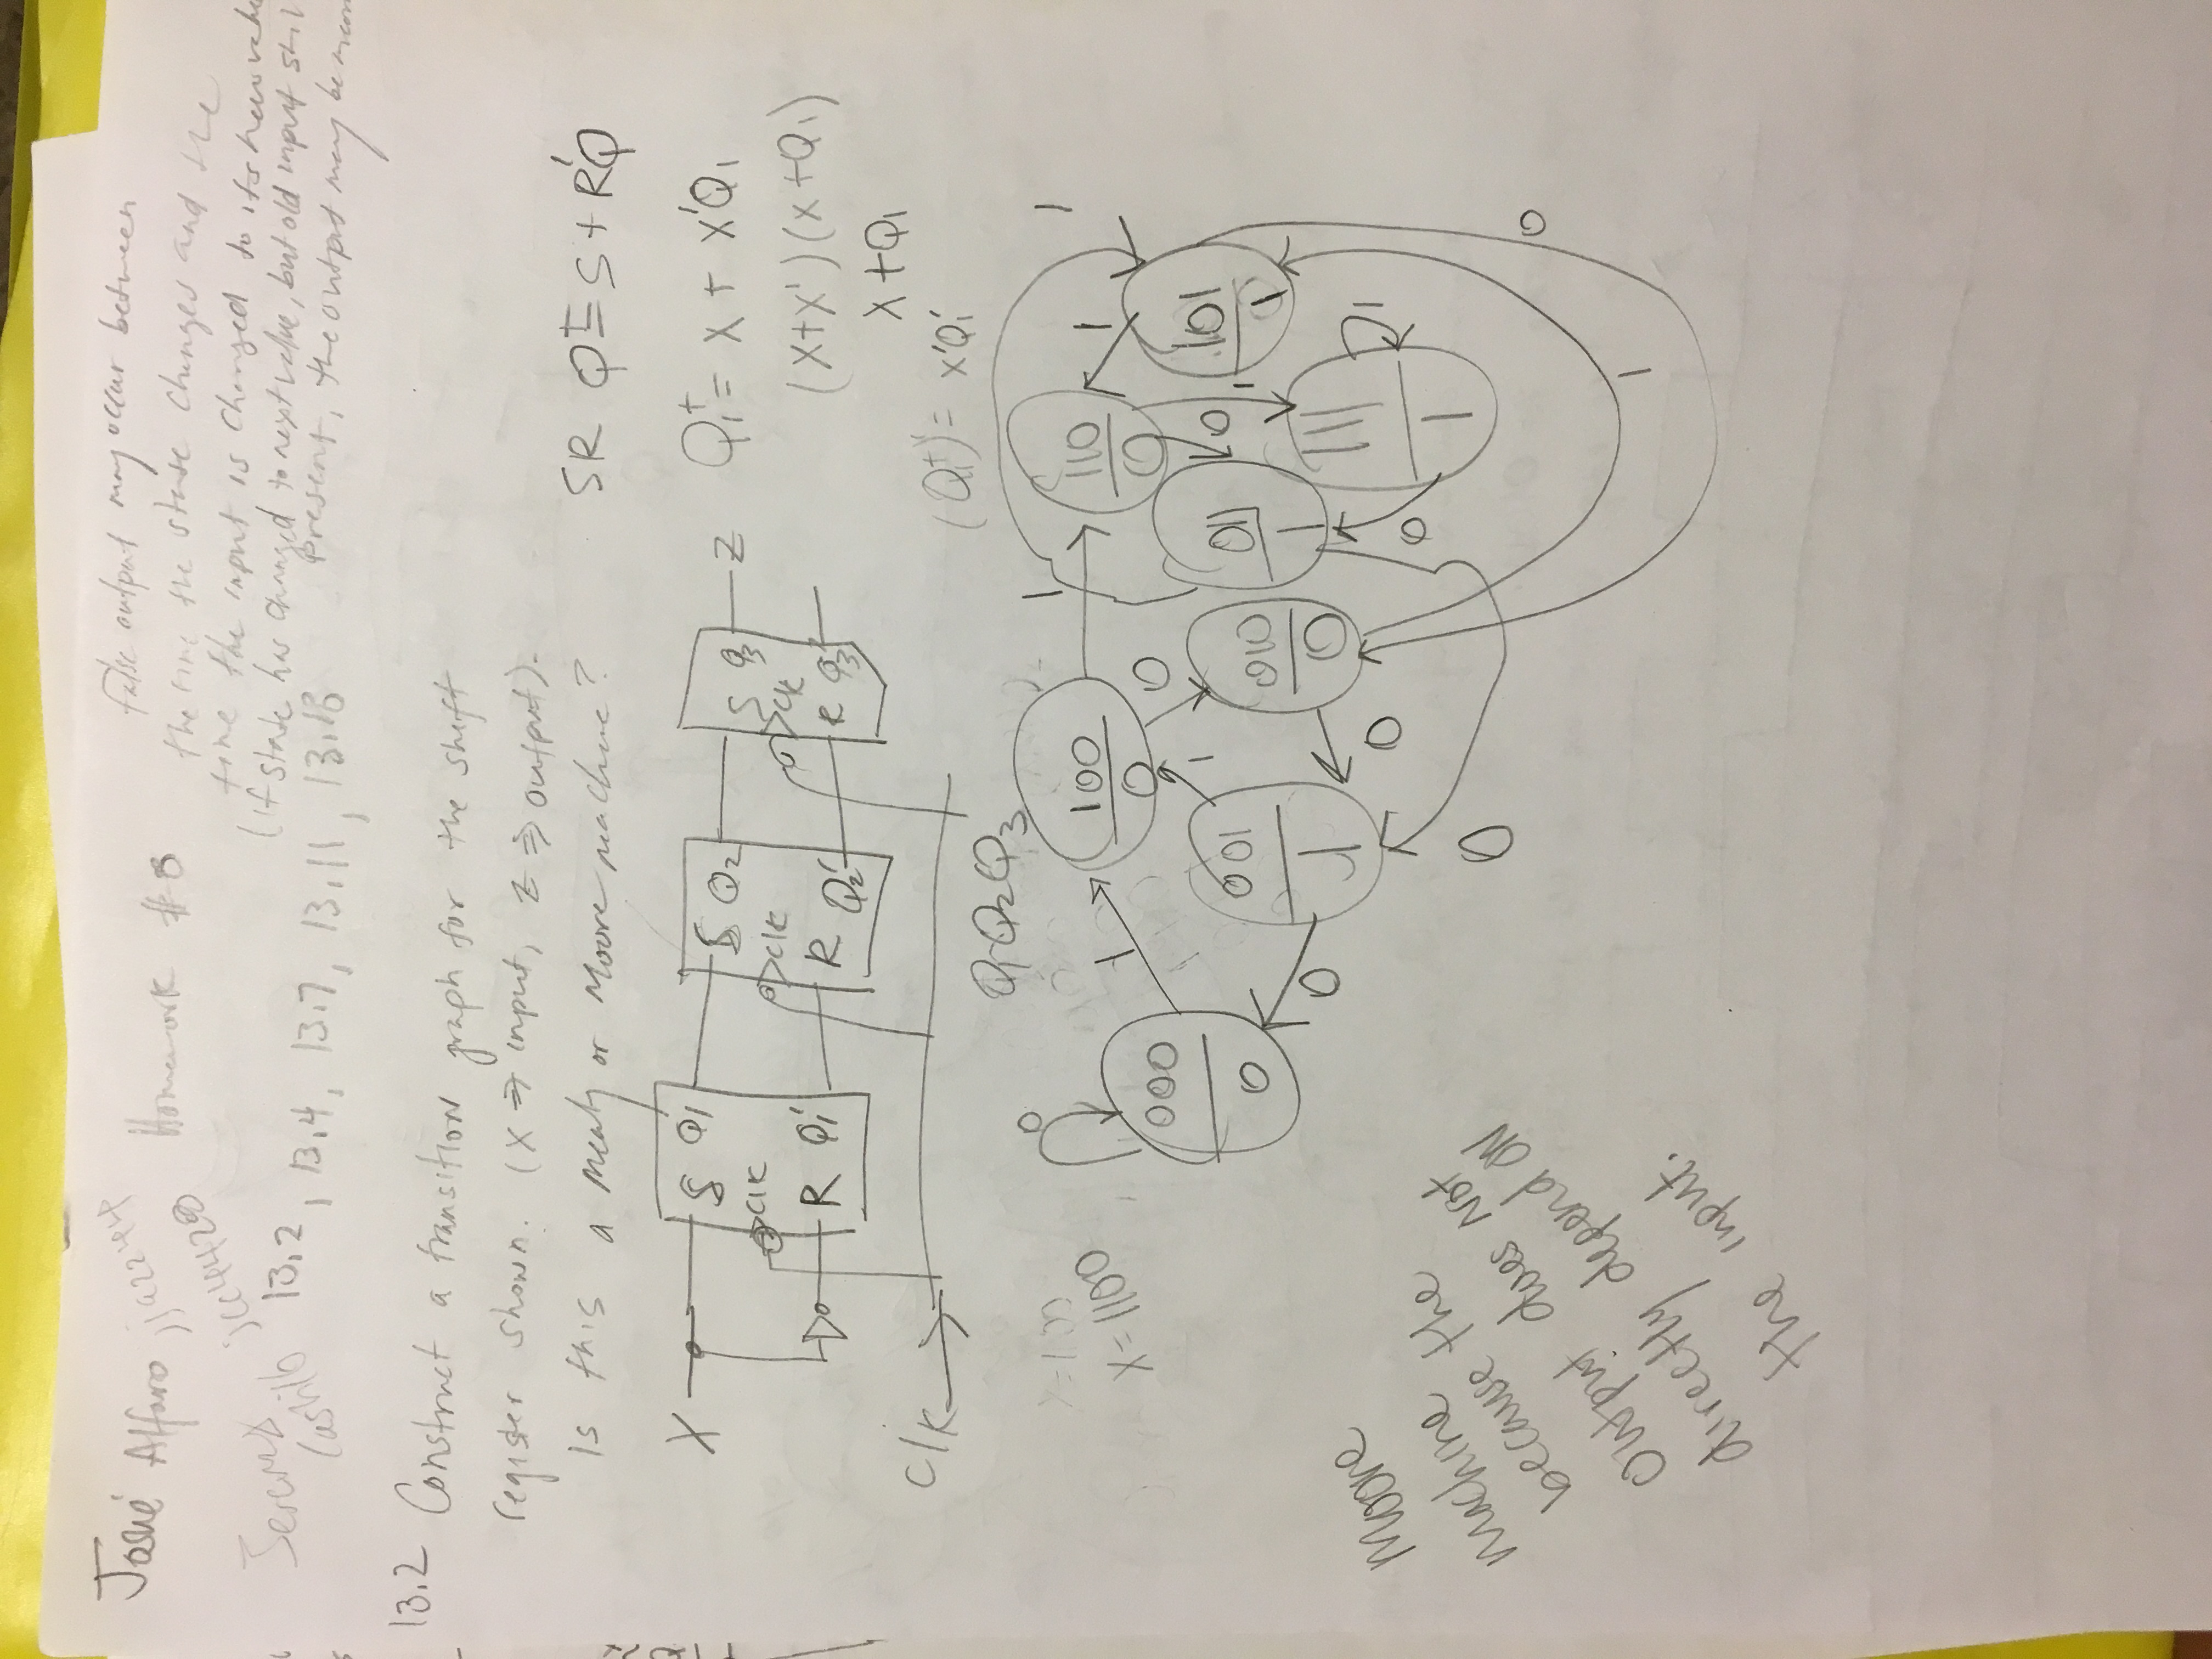 José Alfaro jja2244 Homework #8
Jeremy jcc4428
13.2, 13.4, 13.7, 13.11, 13.18
False output may occur between
the time the state changes and the
time the input is changed to its new
(if state has changed to next value, but old input
present, the output may be
13.2 Construct a transition graph for the shift
register shown. (X ⇒ input, Z ⇒ output).
Is this a Mealy or Moore machine?
SR Q⁺ = S + R'Q
X S Q1 S Q2 S Q3 Z
CLK CLK CLK
R Q1' R Q2' R Q3'
Clk
Q1⁺ = X + X'Q1
(X+X')(X+Q1)
X+Q1
(Q1⁺)' = X'Q1'
Q1Q2Q3
X=100
X=1100
0
000
0
1
100
0
1
110
0
1
1
101
1
001
1
1
0
010
0
011
1
0
1
0
0
111
1
1
0
0
0
1
Moore
machine
because the
output does not
directly depend on
the input.